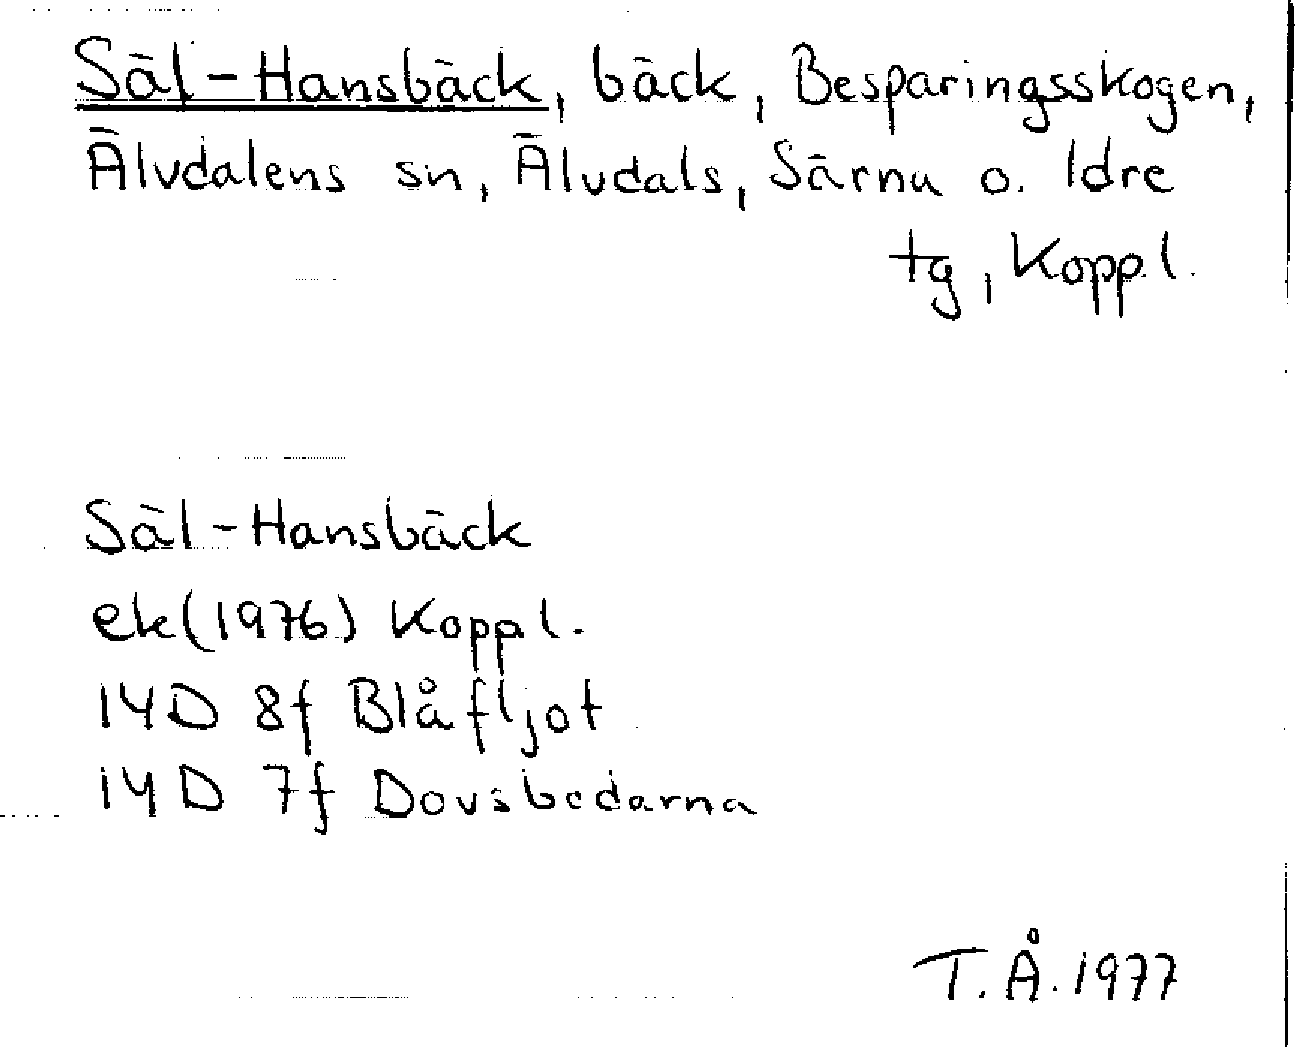 Säl-Hansbäck, bäck, Besparingsskogen,
Älvdalens sn, Älvdals, Särna o. Idre
tg, Koppl.
Säl-Hansbäck
ek(1976) Koppl.
14D 8f Blåfljot
14D 7f Dovsbodarna
T.Å. 1977